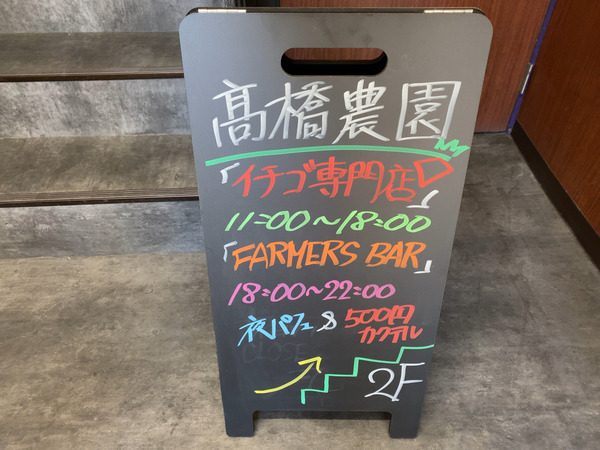 髙橋農園
「イチゴ専門店」
11:00〜18:00
「FARMERS BAR」
18:00〜22:00
夜パフェ & 500円
カクテル
CLOSE
2F